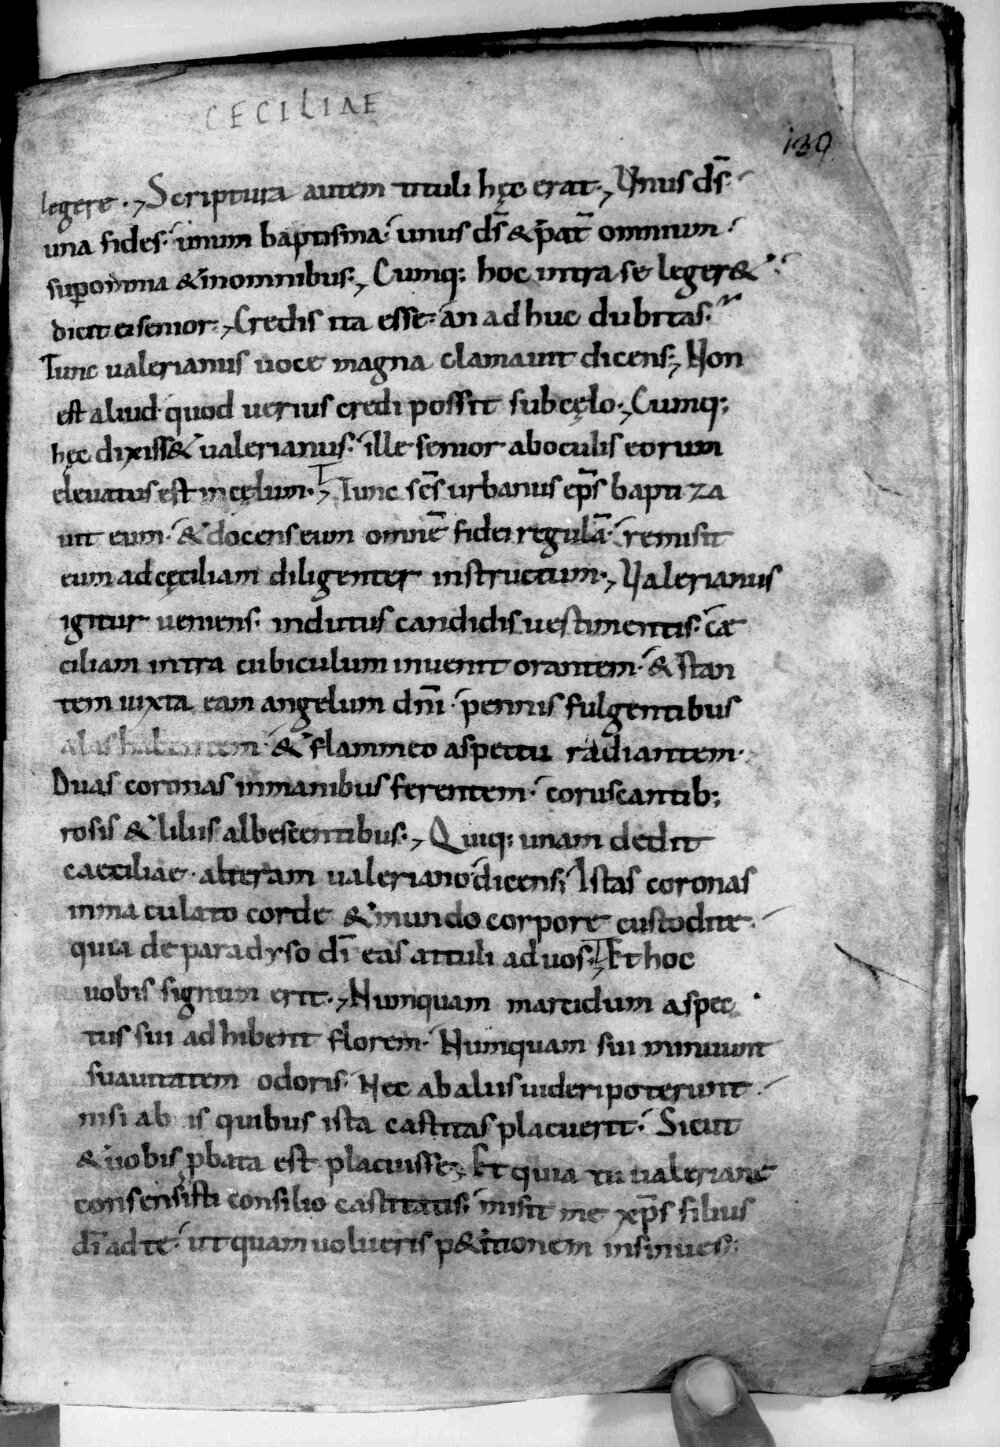 CECILIAE
139
legere·, Scriptura autem tituli hęc erat·, Unus ds̄·
una fides· unum baptisma· unus ds̄ & pat̄ omnium·
sup omnia & in omnibus·, Cumq; hoc intra se leger&·
dicit ei senior·, Credis ita esse· an adhuc dubitas·
Tunc valerianus voce magna clamavit dicens·, Non
est aliud quod verius credi possit sub cęlo·, Cumq;
hęc dixiss& valerianus· ille senior ab oculis eorum
elevatus est in cęlum·, Tunc sc̄s urbanus ep̄s baptiza
vit eum· & docens eum omnē fidei regulā· remisit
eum ad cęciliam diligenter instructum·, Valerianus
igitur veniens· indutus candidis vestimentis· cae
ciliam intra cubiculum invenit orantem· & stan
tem iuxta eam angelum dn̄i· pennis fulgentibus
alas habentem· & flammeo aspectu radiantem·
Duas coronas in manibus ferentem· coruscantib;
rosis & liliis albescentibus·, Quiq; unam dedit
caeciliae· alteram valeriano dicens; Istas coronas
inmaculato corde & mundo corpore custodite·
quia de paradyso dī eas attuli ad vos·, Et hoc
vobis signum erit·, Nunquam marcidum aspec
tus sui adhibent florem· Nunquam sui minuunt
suavitatem odoris· Nec ab aliis videri poterunt·
nisi ab is quibus ista castitas placuerit· Sicut
& vobis pbata est placuisse·, Et quia tu valeriane
consensisti consilio castitatis; misit me xp̄s filius
dī ad te· ut quam volueris p&itionem insinues;